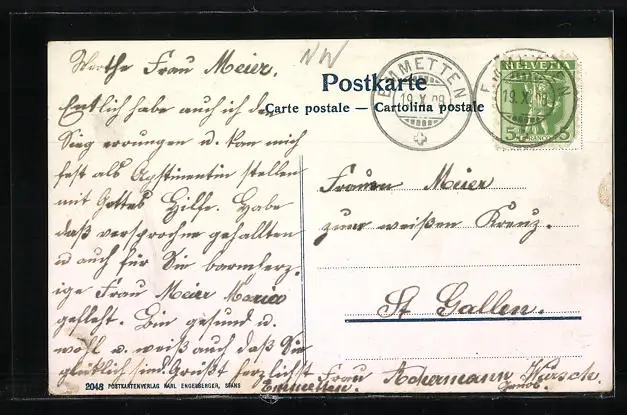 Werthe Frau Meier.
Entlich habe auch ich den
Sieg errungen u. kan mich
fest als Abstinentin stellen
mit Gottes Hilfe. Habe
daß versprochne gehallten
u auch für Sie barmherz-
ige Frau Meier Maria
gefleht. Bin gesund u.
wohl u. weiß auch daß Sie
glücklich sind. Grüßt herzlichst Frau Achermann Würsch.
Emmetten.
NW
Postkarte
Carte postale — Cartolina postale
EMMETTEN
19.X.09
HELVETIA
EMMETTEN
19.X.09
5 5
FRANCO
Frauen Meier
zum weißen Kreuz.
St Gallen.
2048 POSTKARTENVERLAG KARL ENGELBERGER, STANS